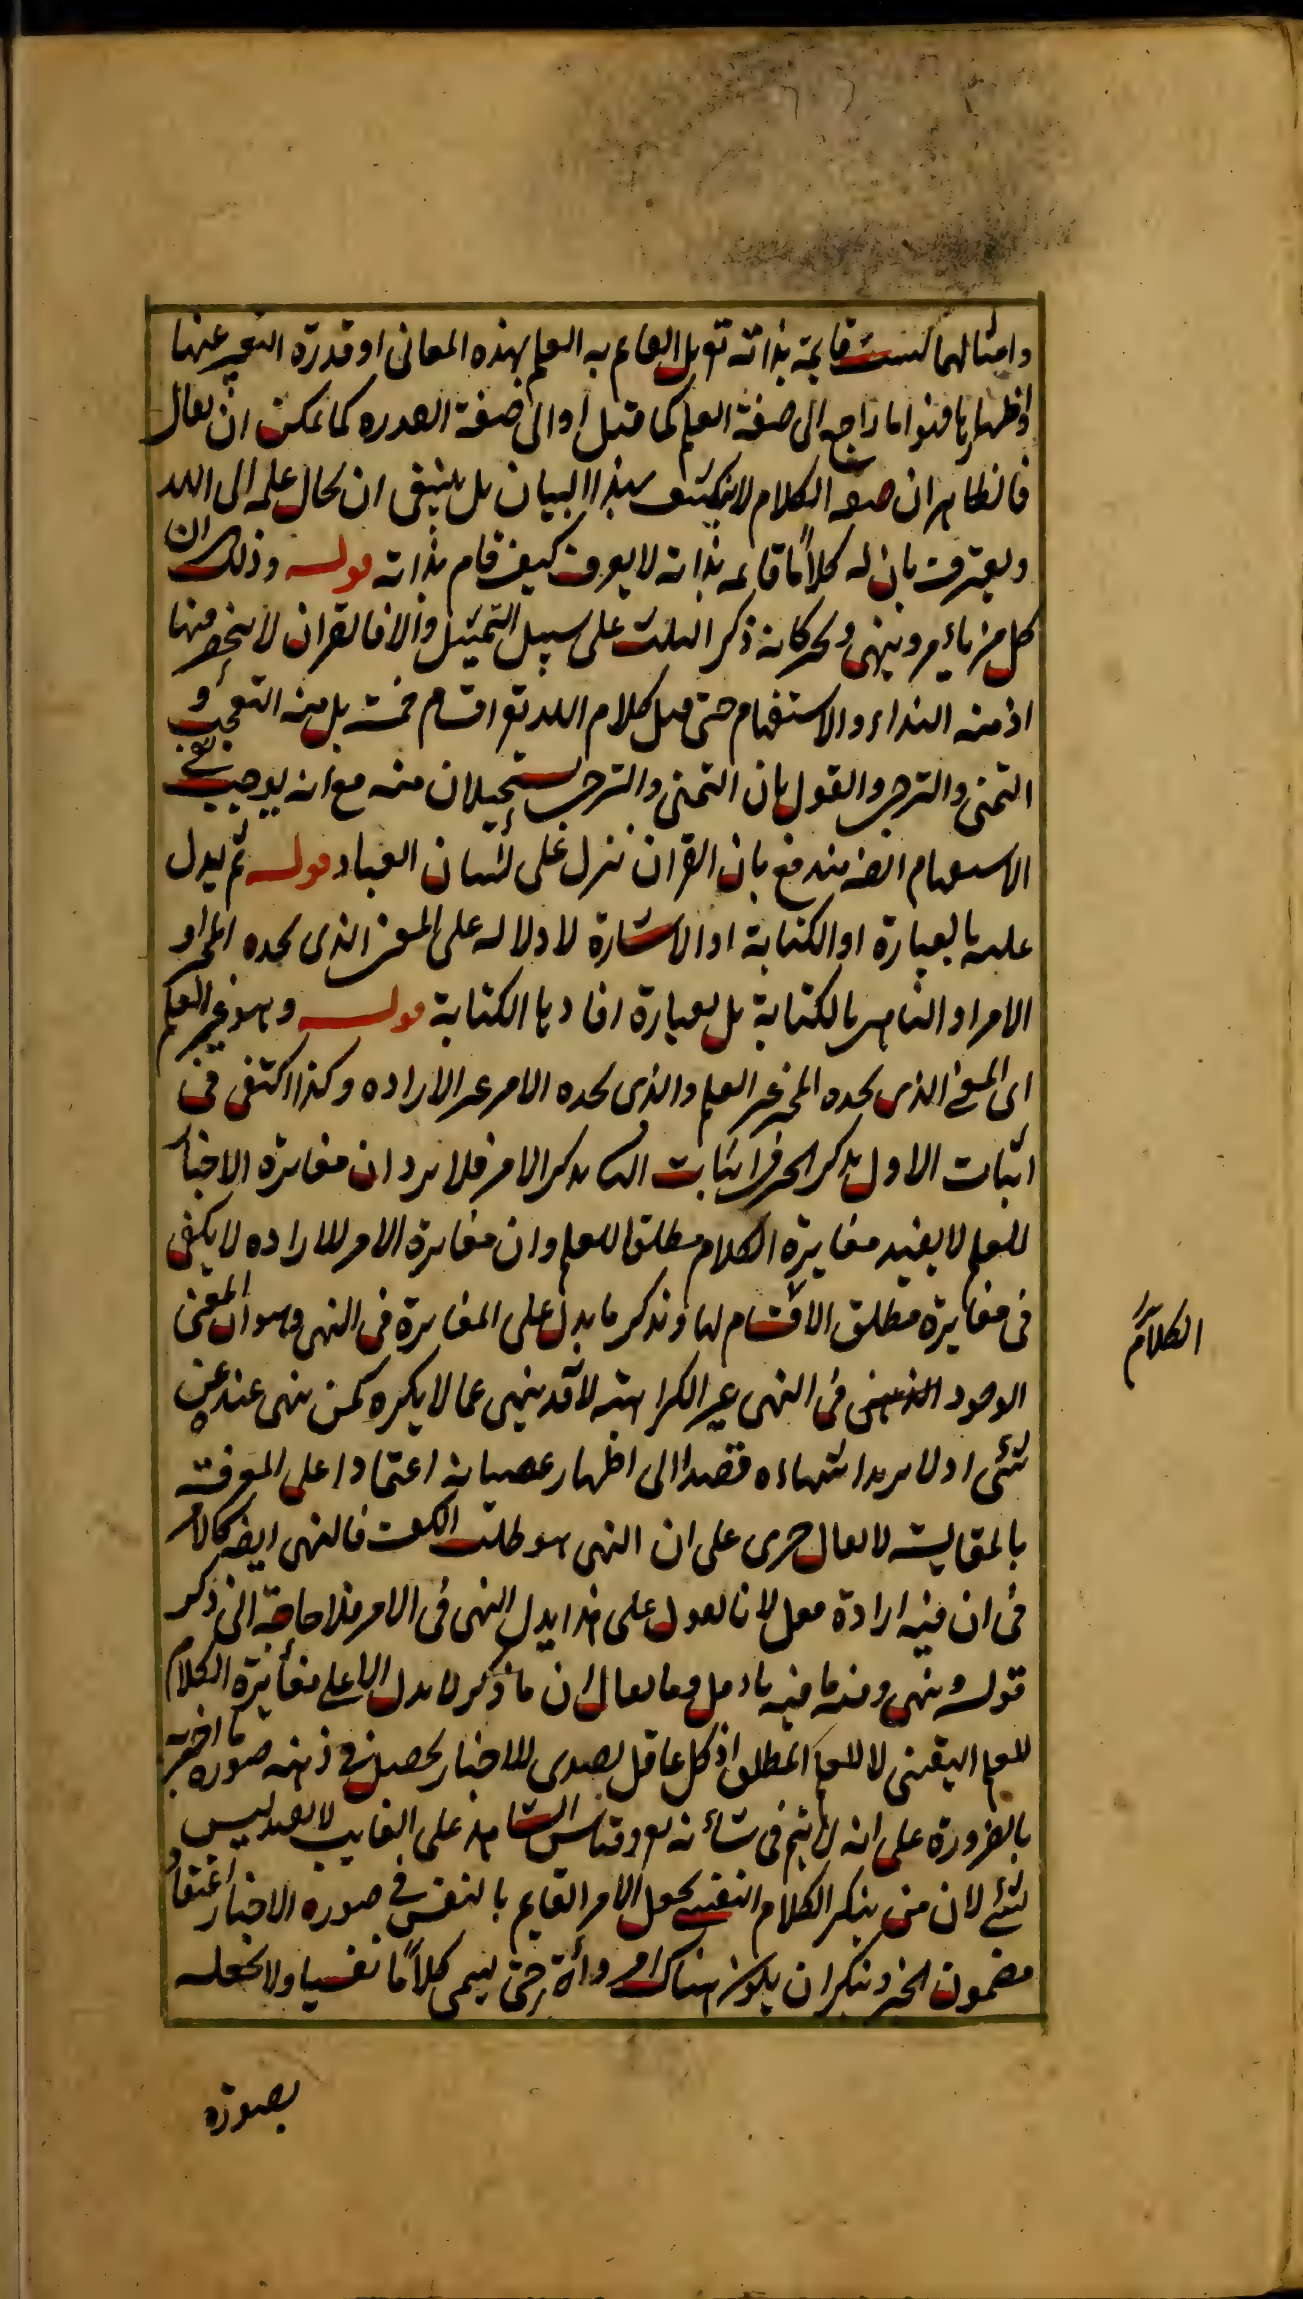 وامثالهما ليست قايمة بذاته تع بل القايم به العلم بهذه المعانى او قدرة التعبير عنها
واظهارها فهو اما راجع الى صفة العلم كما قيل او الى صفة القدره كما يمكن ان يقال
فالظاهر ان صفة الكلام لا ينكشف بهذا البيان بل ينبغى ان يحال علمه الى الله
ويعترف بان له كلاما قايما بذاته لا يعرف كيف قام بذاته قوله وذلك ان
كل من يأمر وينهى ويخبر كانه ذكر الثلث على سبيل التمثيل والا فالقران لا ينحصر فيها
اذ منه النداء والاستفهام حتى قيل كلام الله تع اقسام خمسة بل منه التعجب و
التمنى والترجى والقول بان التمنى والترجى يستحيلان منه مع انه يوجب نفى
الاستفهام ايضا يندفع بان القران نزل على لسان العباد قوله ثم يدل
عليه بالعبارة او الكتابة او الاشارة لا دلالة على المعنى الذى يجده المخبر او
الامر او الناهى بالكتابة بل بعبارة افادها الكتابة قوله وهو غير العلم
اى المعنى الذى يجده المخبر غير العلم والذى يجده الامر غير الاراده وكذا اكتفى فى
اثبات الاول بذكر الخبر وفى اثبات الثانى بذكر الامر فلا يرد ان مغايرة الاخبار
للعلم لا يفيد مغايرة الكلام مطلقا للعلم وان مغايرة الامر للاراده لا يكفى
فى مغايرة مطلق الاقسام لها ونذكر ما يدل على المغايرة فى النهى وهو ان المعنى
الموجود الذهنى فى النهى غير الكراهته لانه قد ينهى عما لا يكره كمن ينهى عبده عن
شئ اذ لا يريد انتهاءه قصدا الى اظهار عصيانه اعتمادا على المعرفة
بالمقايسة لا يقال جرى على ان النهى هو طلب الكف فالنهى ايضا كالامر
فى ان فيه ارادة فعل لانا نقول على هذا يدل النهى فى الامر فلا حاجة الى ذكر
قوله وينهى وفيه ما فيه تامل وما يقال ان ما ذكر لا يدل الا على مغايرة الكلام
للعلم اليقينى لا للعلم المطلق اذ كل عاقل تصدى للاخبار يحصل فى ذهنه صورة ما اخبر
بالضرورة على انه لا يتم فى شأنه تع وقياس الشاهد على الغايب لا يفيد ليس
بشئ لان من ينكر الكلام النفسى يجعل الامر القايم بالنفس فى صورة الاخبار اعتقاد
مضمون الخبر وينكر ان يكون هناك امر وراءه حتى يسمى كلاما نفسيا ولا يجعله
الكلام
بصورة